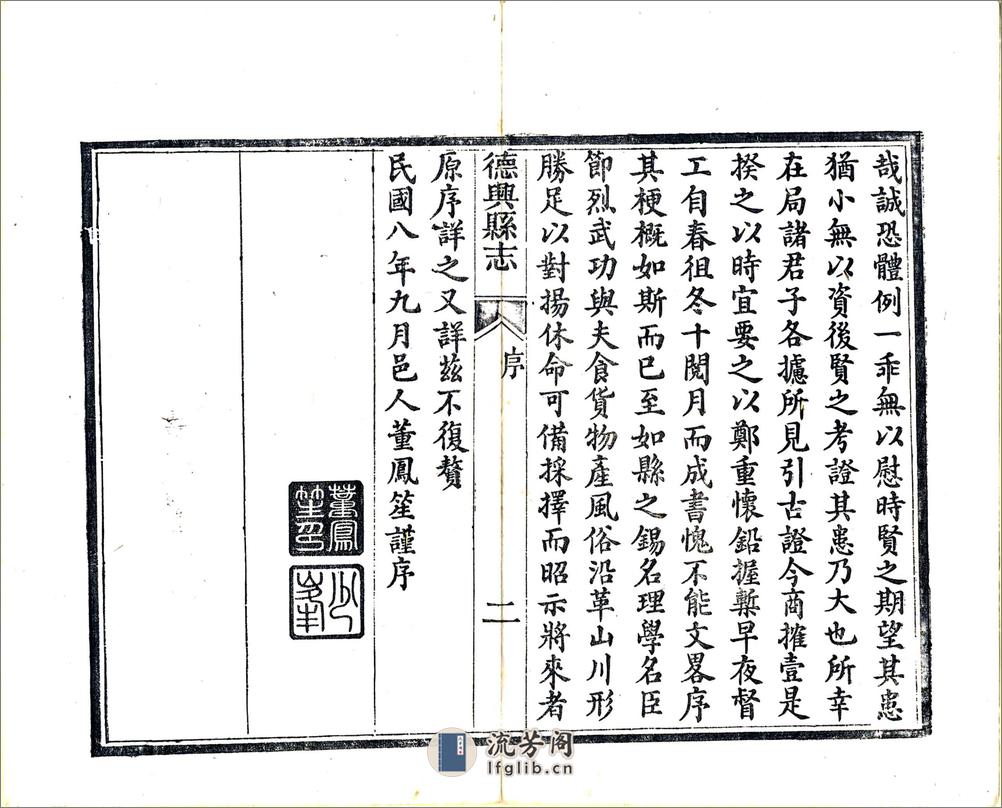 哉誠恐體例一乖無以慰時賢之期望其患
猶小無以資後賢之考證其患乃大也所幸
在局諸君子各攄所見引古證今商搉壹是
揆之以時宜要之以鄭重懷鉛握槧早夜督
工自春徂冬十閱月而成書愧不能文畧序
其梗概如斯而已至如縣之錫名理學名臣
節烈武功與夫食貨物產風俗沿革山川形
勝足以對揚休命可備採擇而昭示將來者
德興縣志
序
二
原序詳之又詳茲不復贅
民國八年九月邑人董鳳笙謹序
董鳳
笙印
流芳阁
lfglib.cn